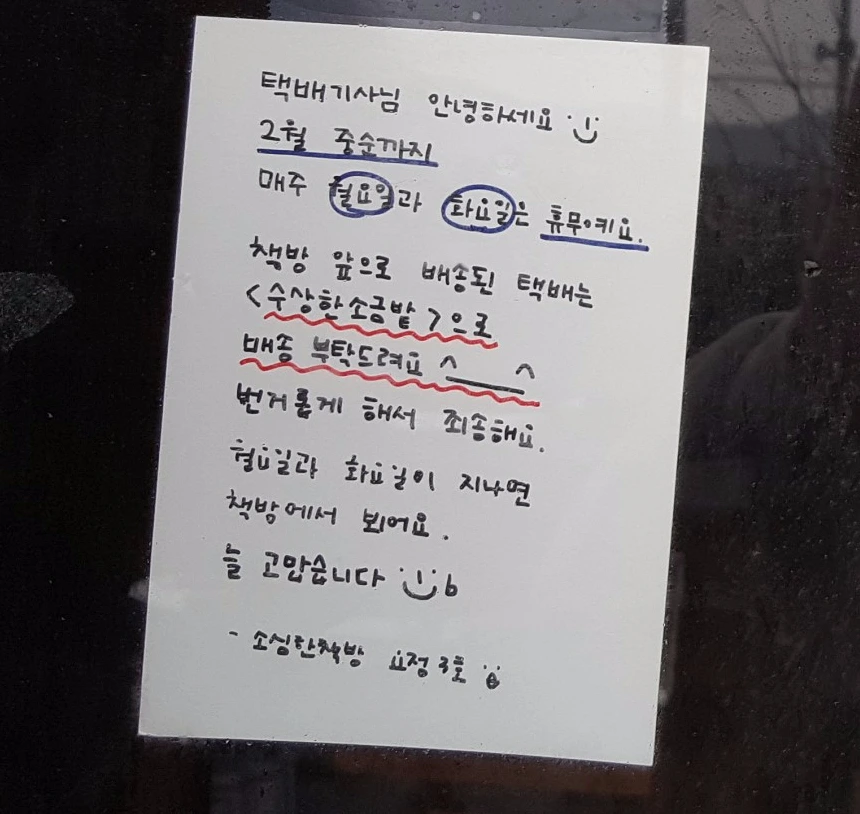 택배기사님 안녕하세요
2월 중순까지
매주 월요일과 화요일은 휴무예요.
책방 앞으로 배송된 택배는
<수상한소금밭>으로
배송 부탁드려요 ^__^
번거롭게 해서 죄송해요.
월요일과 화요일이 지나면
책방에서 뵈어요.
늘 고맙습니다
- 소심한책방 요정 3호